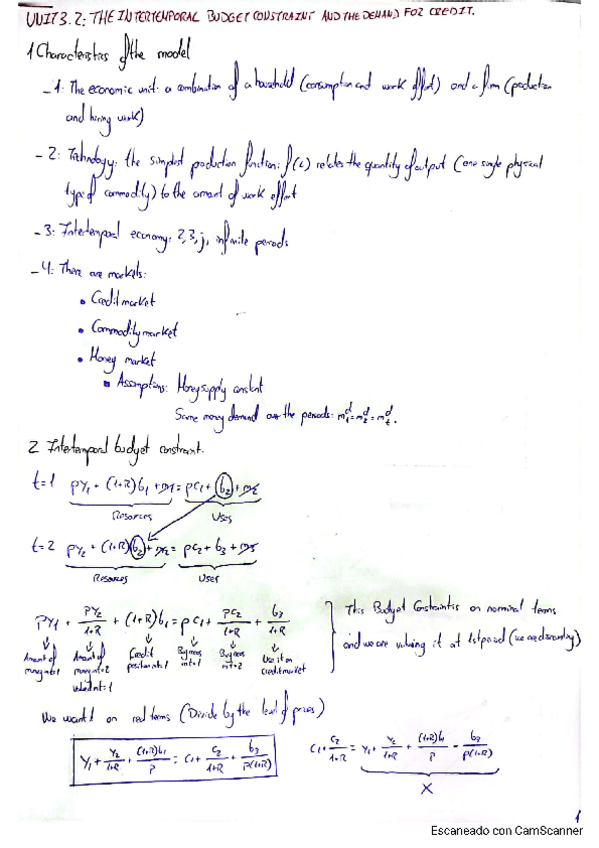 UNIT 3.2: THE INTERTEMPORAL BUDGET CONSTRAINT AND THE DEMAND FOR CREDIT.
1 Characteristics of the model
- 1: The economic unit: a combination of a household (consumption and work effort) and a firm (production
and hiring work)
- 2: Technology: the simplest production function: f(L) relates the quantity of output (one single physical
type of commodity) to the amount of work effort
- 3: Intertemporal economy: 2, 3, j, infinite periods
- 4: There are markets:
• Credit market
• Commodity market
• Money market
▪ Assumptions: Money supply constant
Same money demand over the periods: m₁ᵈ = m₂ᵈ = mₜᵈ.
2 Intertemporal budget constraint.
t=1 PY₁ + (1+R)b₁ + m₁ = PC₁ + b₂ + m₂
Resources Uses
t=2 PY₂ + (1+R)b₂ + m₂ = PC₂ + b₃ + m₃
Resources Uses
PY₁ + PY₂/(1+R) + (1+R)b₁ = PC₁ + PC₂/(1+R) + b₃/(1+R)
This Budget Constraint is on nominal terms
and we are valuing it at 1st period (we are discounting)
Amount of money in t=1
Amount of money in t=2 valued in t=1
Credit position in t=1
Buyings in t=1
Buyings in t=2
Use it on credit market
We want it on real terms (Divide by the level of prices)
Y₁ + Y₂/(1+R) + (1+R)b₁/P = C₁ + C₂/(1+R) + b₃/(P(1+R))
C₁ + C₂/(1+R) = Y₁ + Y₂/(1+R) + (1+R)b₁/P - b₃/(P(1+R))
X
1
Escaneado con CamScanner